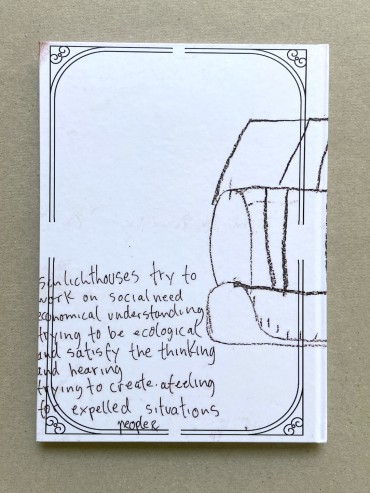 sunlichthouses try to
work on social need
economical understanding
trying to be ecological
and satisfy the thinking
and hearing
trying to create a feeling
for expelled situations
people